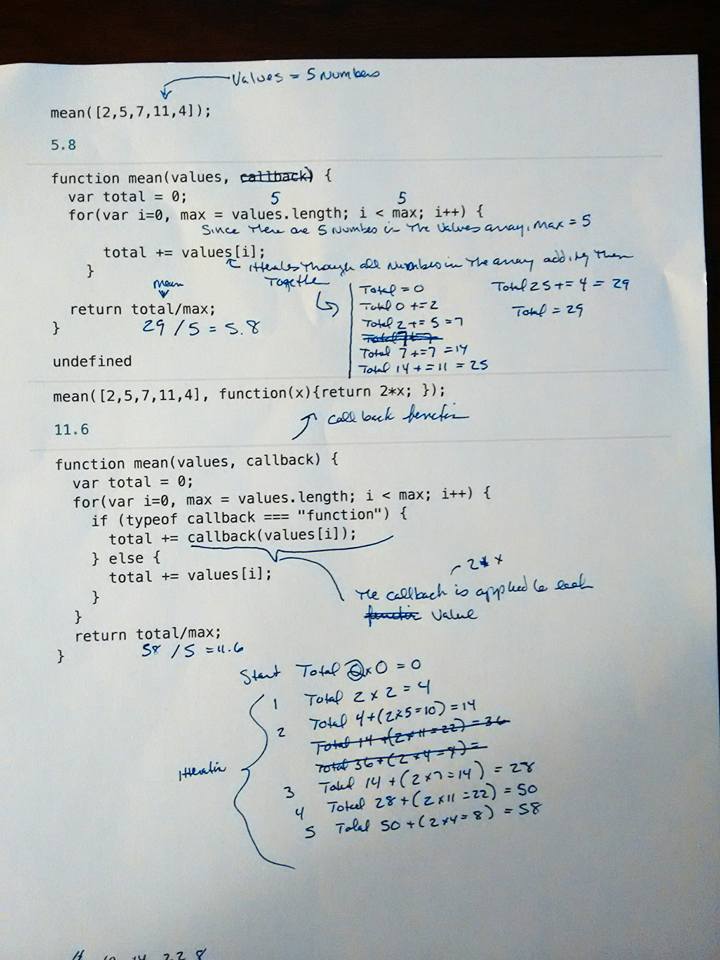 Values = 5 Numbers
mean([2,5,7,11,4]);
5.8
function mean(values, callback) {
var total = 0; 5 5
for(var i=0, max = values.length; i < max; i++) {
Since There are 5 Numbers in The Values array, max = 5
total += values[i];
Iterates Through all Numbers in The array adding Them
Together
}
mean
return total/max;
}
29 / 5 = 5.8
Total = 0
Total 0 += 2
Total 2 += 5 = 7
Total 7 += 7 = 14
Total 14 += 11 = 25
Total 25 += 4 = 29
Total = 29
undefined
mean([2,5,7,11,4], function(x){return 2*x; });
call back function
11.6
function mean(values, callback) {
var total = 0;
for(var i=0, max = values.length; i < max; i++) {
if (typeof callback === "function") {
total += callback(values[i]);
} else {
total += values[i];
}
}
return total/max;
}
58 / 5 = 11.6
2 * x
The callback is applied to each
function value
Start Total 2x0 = 0
Iteration
1 Total 2 x 2 = 4
2 Total 4+(2x5=10) = 14
Total 14 +(2x11=22) = 36
Total 36+(2x4=8)=
3 Total 14 +(2x7=14) = 28
4 Total 28+(2x11=22) = 50
5 Total 50+(2x4=8) = 58